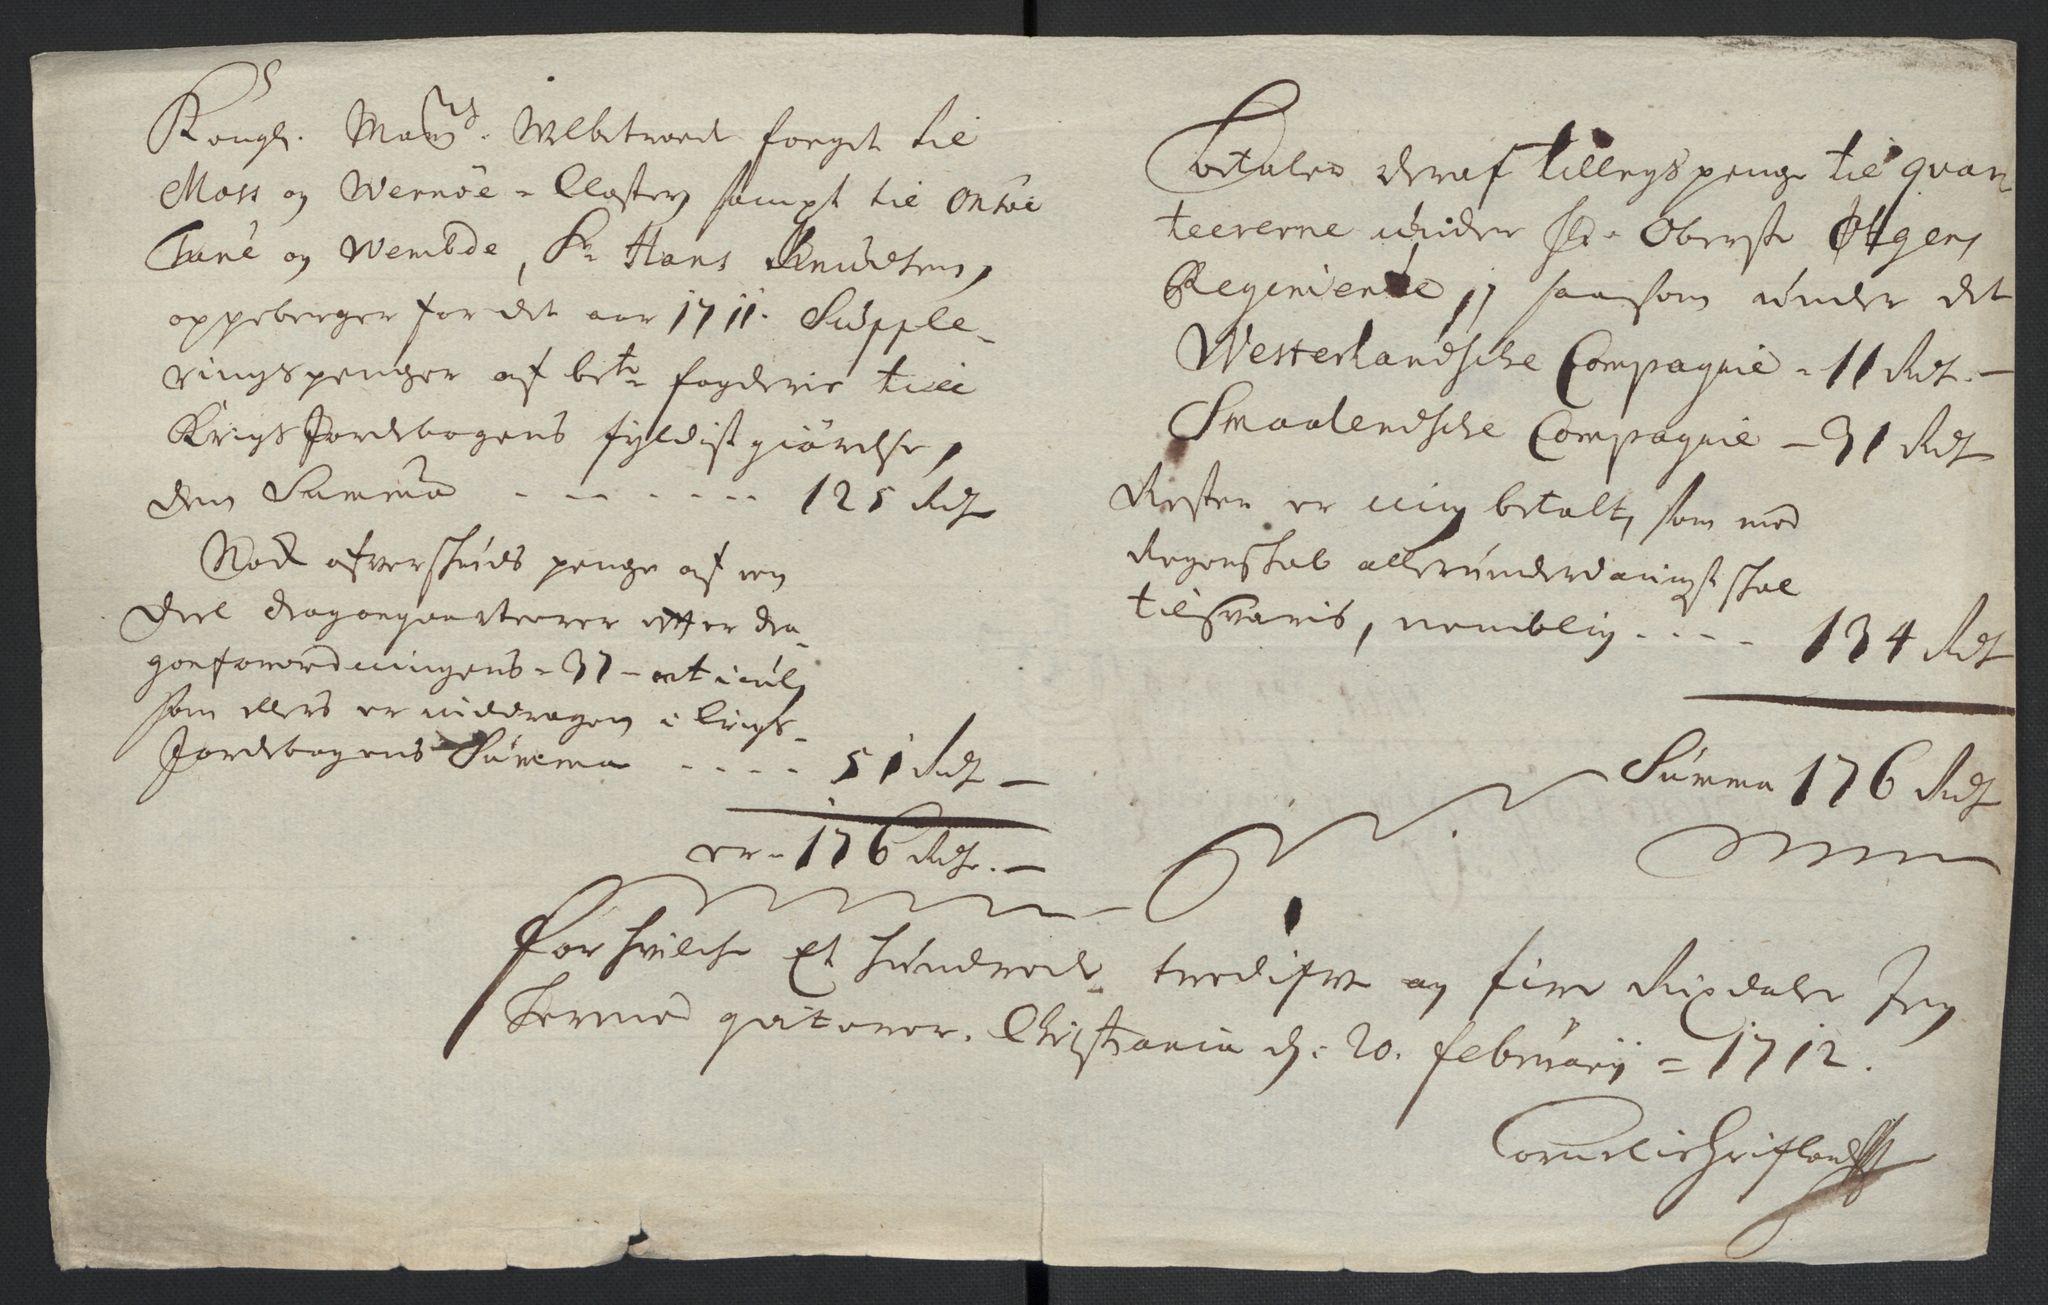 Kongl. Mayts. Velbetroed foeget til
Moss og Wernøe - Closter sampt til Onsøe
Tune og Wembde, Sr. Hans Knudsen,
oppeberger for det aar 1711. Supple-
ringspenger af bete fogderie till
KrigsJordebogens fyldistgiørelse,
den Summa - - - - - - 125 Rdr
Nock ofverskuds penge af een
deel dragonqvarteerer efter dra-
gonforordningens - 37 - articul
som ellers er inddragen i Krigs-
Jordebogens Summa - - - - 51 Rdr -
er - 176 Rdr. -
Betaler deraf tillegs penge til qvar-
teererne under Hr. Oberste
Regimente, saasom under det
Westerlandsche Compagnie - 11 Rdr. -
Smaalendsche Compagnie - 31 Rdr
Resten er mig betalt, som med
Regenskab allerunderdanigst skal
tilsvaris, nemblig - - - - 134 Rdr
Summa 176 Rdr
For hvilche Et hundrede tredifve og fire Rixdaler Jeg
hermed qviterer. Christiania d: 20. februarij = 1712.